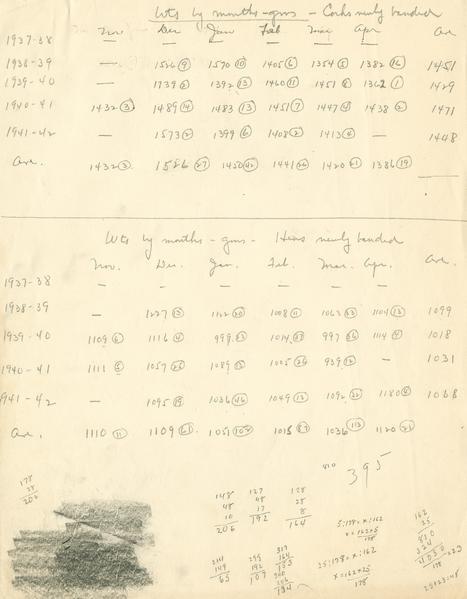 Wts by months - gms - Cocks newly banded
Nov Dec Jan Feb Mar Apr Av
1937-38 — — — — — —
1938-39 — 1526 (9) 1570 (10) 1405 (6) 1354 (5) 1382 (16) 1451
1939-40 — 1739 (2) 1392 (13) 1460 (11) 1451 (8) 1362 (1) 1429
1940-41 1432 (3) 1489 (14) 1483 (13) 1451 (7) 1447 (4) 1438 (2) 1471
1941-42 — 1573 (2) 1399 (6) 1408 (2) 1413 (4) — 1448
Ave. 1432 (3) 1526 (27) 1450 (42) 1441 (26) 1420 (21) 1386 (19)
Wts by months - gms - Hens newly banded
Nov. Dec. Jan. Feb. Mar. Apr. Ave.
1937-38 — — — — — —
1938-39 — 1237 (13) 1122 (20) 1008 (11) 1063 (23) 1104 (13) 1099
1939-40 1109 (6) 1116 (4) 999 (23) 1014 (27) 997 (26) 1114 (4) 1018
1940-41 1111 (5) 1057 (25) 1089 (15) 1005 (26) 939 (12) — 1031
1941-42 — 1095 (19) 1036 (46) 1049 (13) 1092 (32) 1180 (8) 1038
Ave. 1110 (11) 1109 (61) 1051 (104) 1015 (87) 1036 (113) 1120 (25)
395
178
28
206
148 127 128
48 48 28
10 17 8
206 192 164
5:178 = x:162
x = 162x5
178
25:178 = x:162
x = 162x25
178
162
25
810
324
4050
178